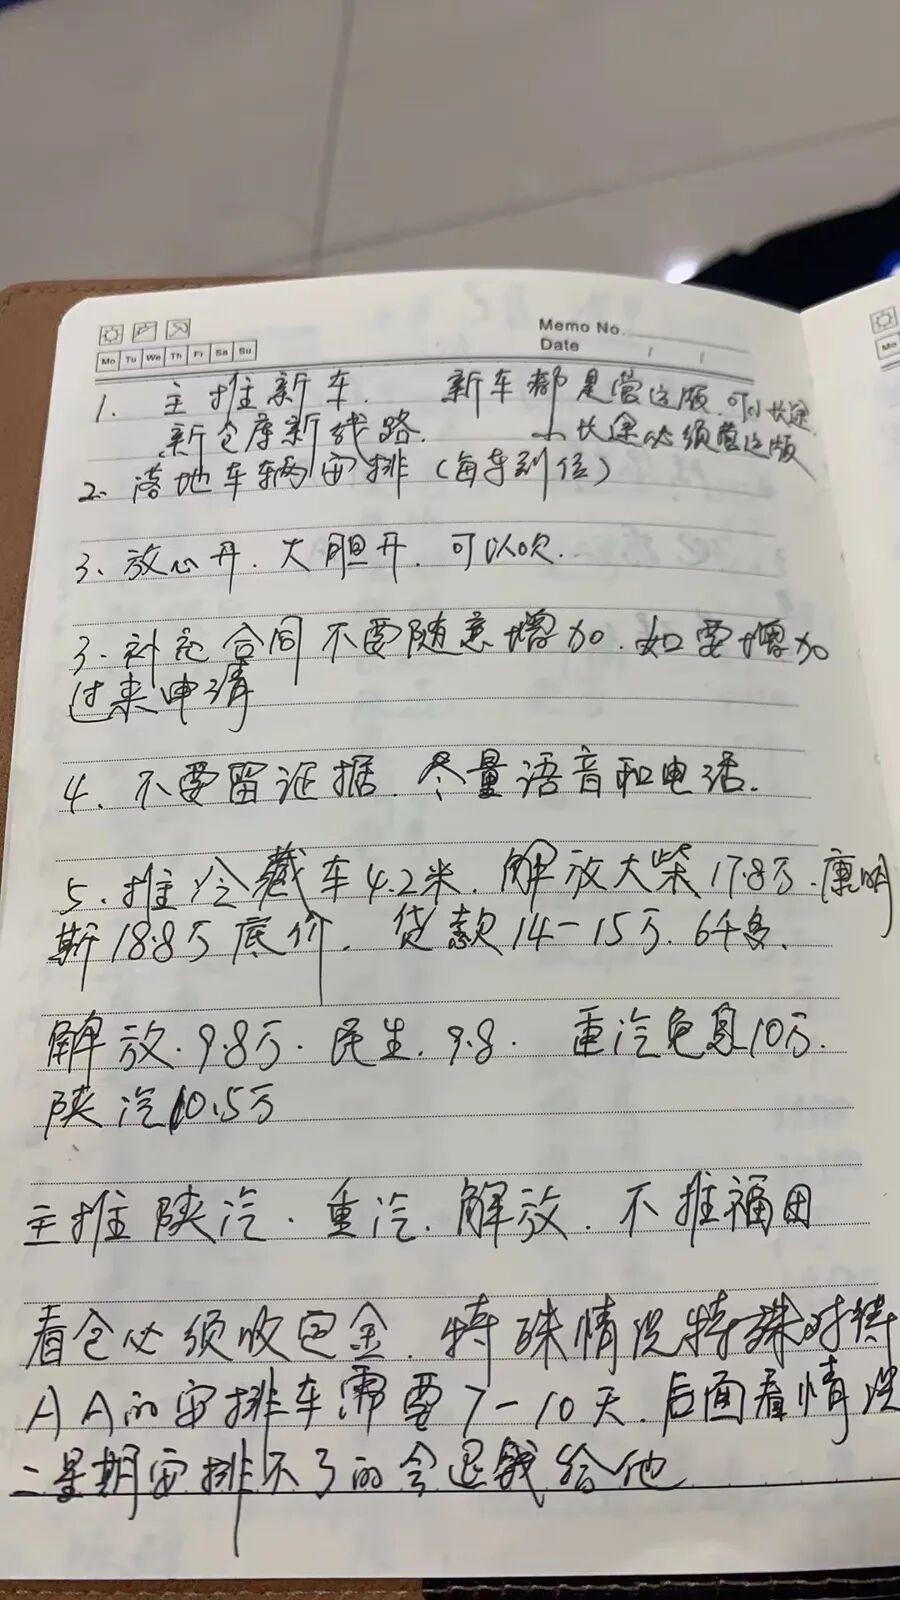 Memo No.
Date / /
Mo Tu We Th Fr Sa Su
1. 主推新车. 新车都是营运版.可小长途.
新仓库新线路. 小长途必须营运版
2. 落地车辆安排(每车到位)
3、放心开.大胆开.可以吹.
3.补充合同不要随意增加.如要增加
过来申请
4、不要留证据.尽量语音和电话.
5、推冷藏车4.2米.解放大柴17.8万.康明
斯18.8万底价.贷款14-15万.64多.
解放.9.8万.民生.9.8. 重汽 10万.
陕汽10.5万
主推陕汽.重汽.解放.不推福田
看仓必须收 金.特殊情况特殊对待
AA的安排车需要7-10天.后面看情况
二星期安排不了的会退钱给他